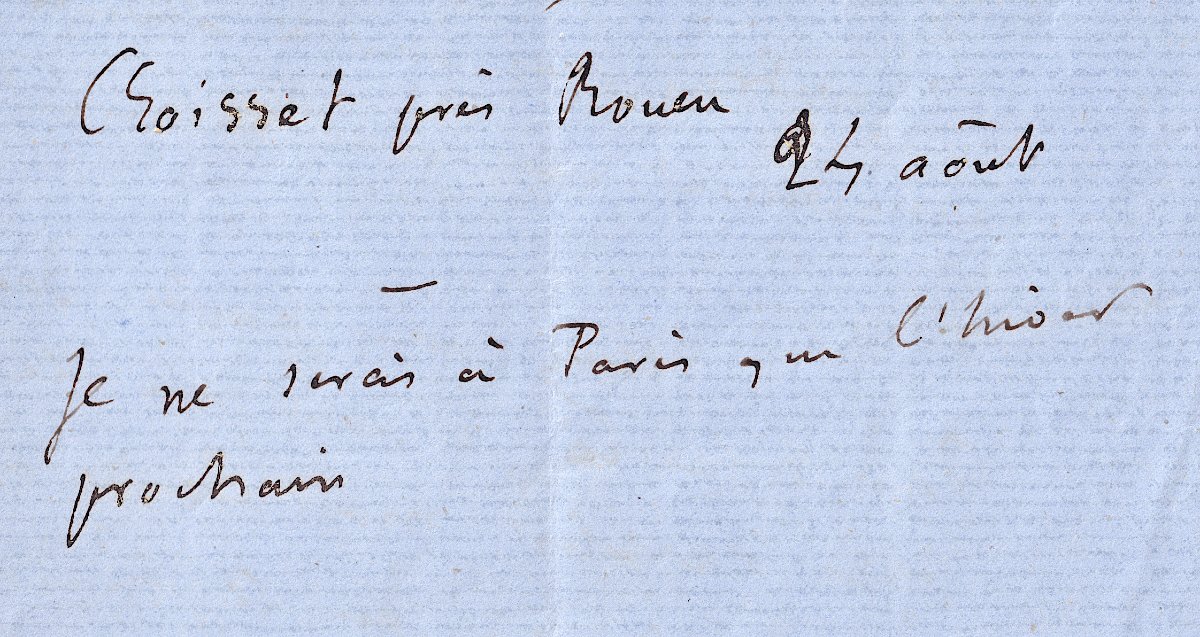 Croisset près Rouen
24 août
—
Je ne serais à Paris que l'hiver
prochain